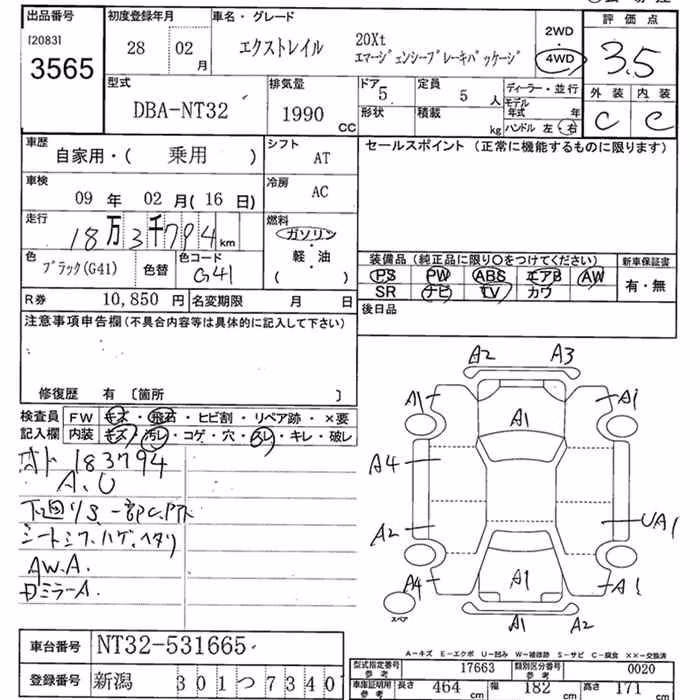 出品番号
[2083]
3565
初度登録年月
28 02 月
車名・グレード
エクストレイル
20Xt
エマージェンシーブレーキパッケージ
2WD
4WD
評価点
3.5
外装 内装
C C
型式
DBA-NT32
排気量
1990 CC
ドア 5
定員 5 人
形状 積載 kg
ディーラー・並行
モデル年式 年
ハンドル 左 右
車歴
自家用・( 乗用 )
シフト
AT
車検
09 年 02 月( 16 日)
冷房
AC
走行
18万3千794 km
燃料
ガソリン
・
軽・油
( )
色
ブラック(G41)
色替
色コード
G41
R券 10,850 円 名変期限 月 日
セールスポイント (正常に機能するものに限ります)
装備品 (純正品に限り○をつけてください)
PS PW ABS エアB AW
SR ナビ TV カワ
新車保証書
有・無
後日品
注意事項申告欄(不具合内容等は具体的に記入して下さい)
修復歴 有 〔箇所 〕
検査員記入欄
FW キズ・飛石・ヒビ割・リペア跡・×要
内装 キズ・汚レ・コゲ・穴・スレ・キレ・破レ
183794
A.U
シートシワ.ハゲ.ヘタリ
AW.A.
ミラーA.
A2 A3
A1 A1 A1
A4
A2 UA1
A4 A1 A1
スペア
A1 A2
A-キズ E-エクボ U-凹み W-補修跡 S-サビ C-腐食 ××-交換済
車台番号 NT32-531665
登録番号 新潟 301つ7340
型式指定番号 参考 17663 類別区分番号 参考 0020
車庫証明用 参考 長さ 464 cm 幅 182 cm 高さ 171 cm